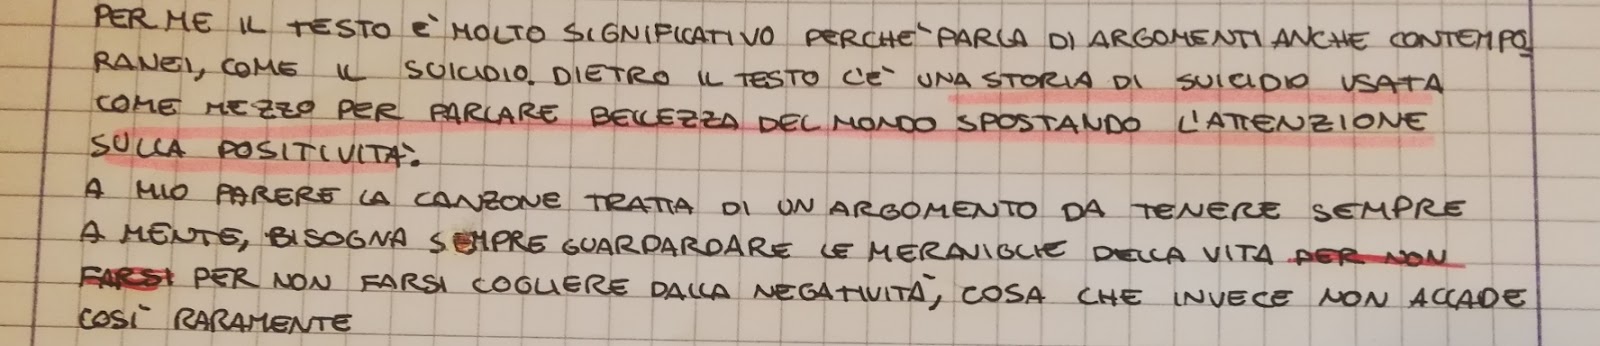 PER ME IL TESTO E' MOLTO SIGNIFICATIVO PERCHE' PARLA DI ARGOMENTI ANCHE CONTEMPO
RANEI, COME IL SUICIDIO. DIETRO IL TESTO C'E' UNA STORIA DI SUICIDIO USATA
COME MEZZO PER PARLARE BELLEZZA DEL MONDO SPOSTANDO L'ATTENZIONE
SULLA POSITIVITA'.
A MIO PARERE LA CANZONE TRATTA DI UN ARGOMENTO DA TENERE SEMPRE
A MENTE, BISOGNA SEMPRE GUARDARDARE LE MERAVIGLIE DELLA VITA PER NON
FARSI PER NON FARSI COGLIERE DALLA NEGATIVITA', COSA CHE INVECE NON ACCADE
COSI' RARAMENTE